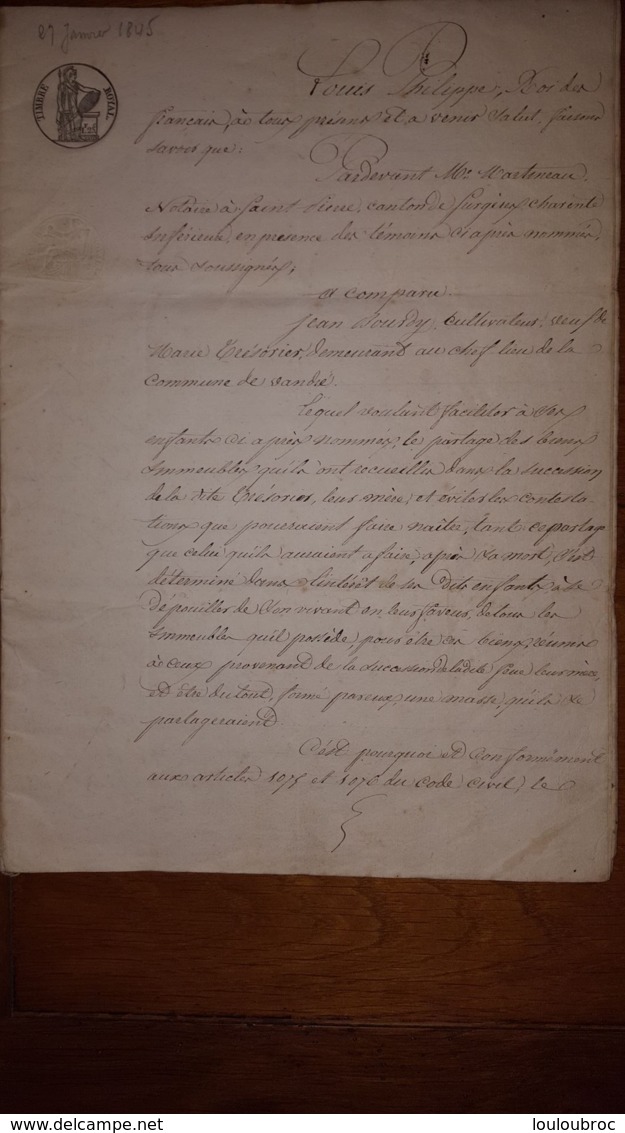 27 Janvier 1845
TIMBRE ROYAL
Louis Philippe, Roi des
français, à tous présens et à venir Salut, faisons
savoir que:
Pardevant Me. Martineau,
Notaire à Saint Pierre, canton de Surgères, Charente
Inférieure, en présence des témoins ci après nommés,
tous soussignés;
a comparu
Jean Bourdy, cultivateur, veuf de
Marie Trésorier, demeurant au chef lieu de la
commune de vandré.
Lequel voulant faciliter à ses
enfants ci après nommés, le partage des biens
immeubles qu'ils ont recueillis dans la succession
de la dite Trésorier, leur mère, et éviter les contesta-
tions que pourraient faire naître, tant ce partage
que celui qu'ils auraient à faire, après sa mort, s'est
déterminé dans l'intérêt de ses dits enfants à se
dépouiller de son vivant en leur faveur, de tous les
immeubles qu'il possède, pour être ces biens, réunis
à ceux provenant de la succession de ladite feue leur mère,
et être du tout, formé par eux, une masse, qu'ils se
partageraient.
C'est pourquoi et conformément
aux articles 1075 et 1076 du code civil, le
delcampe.net
louloubroc